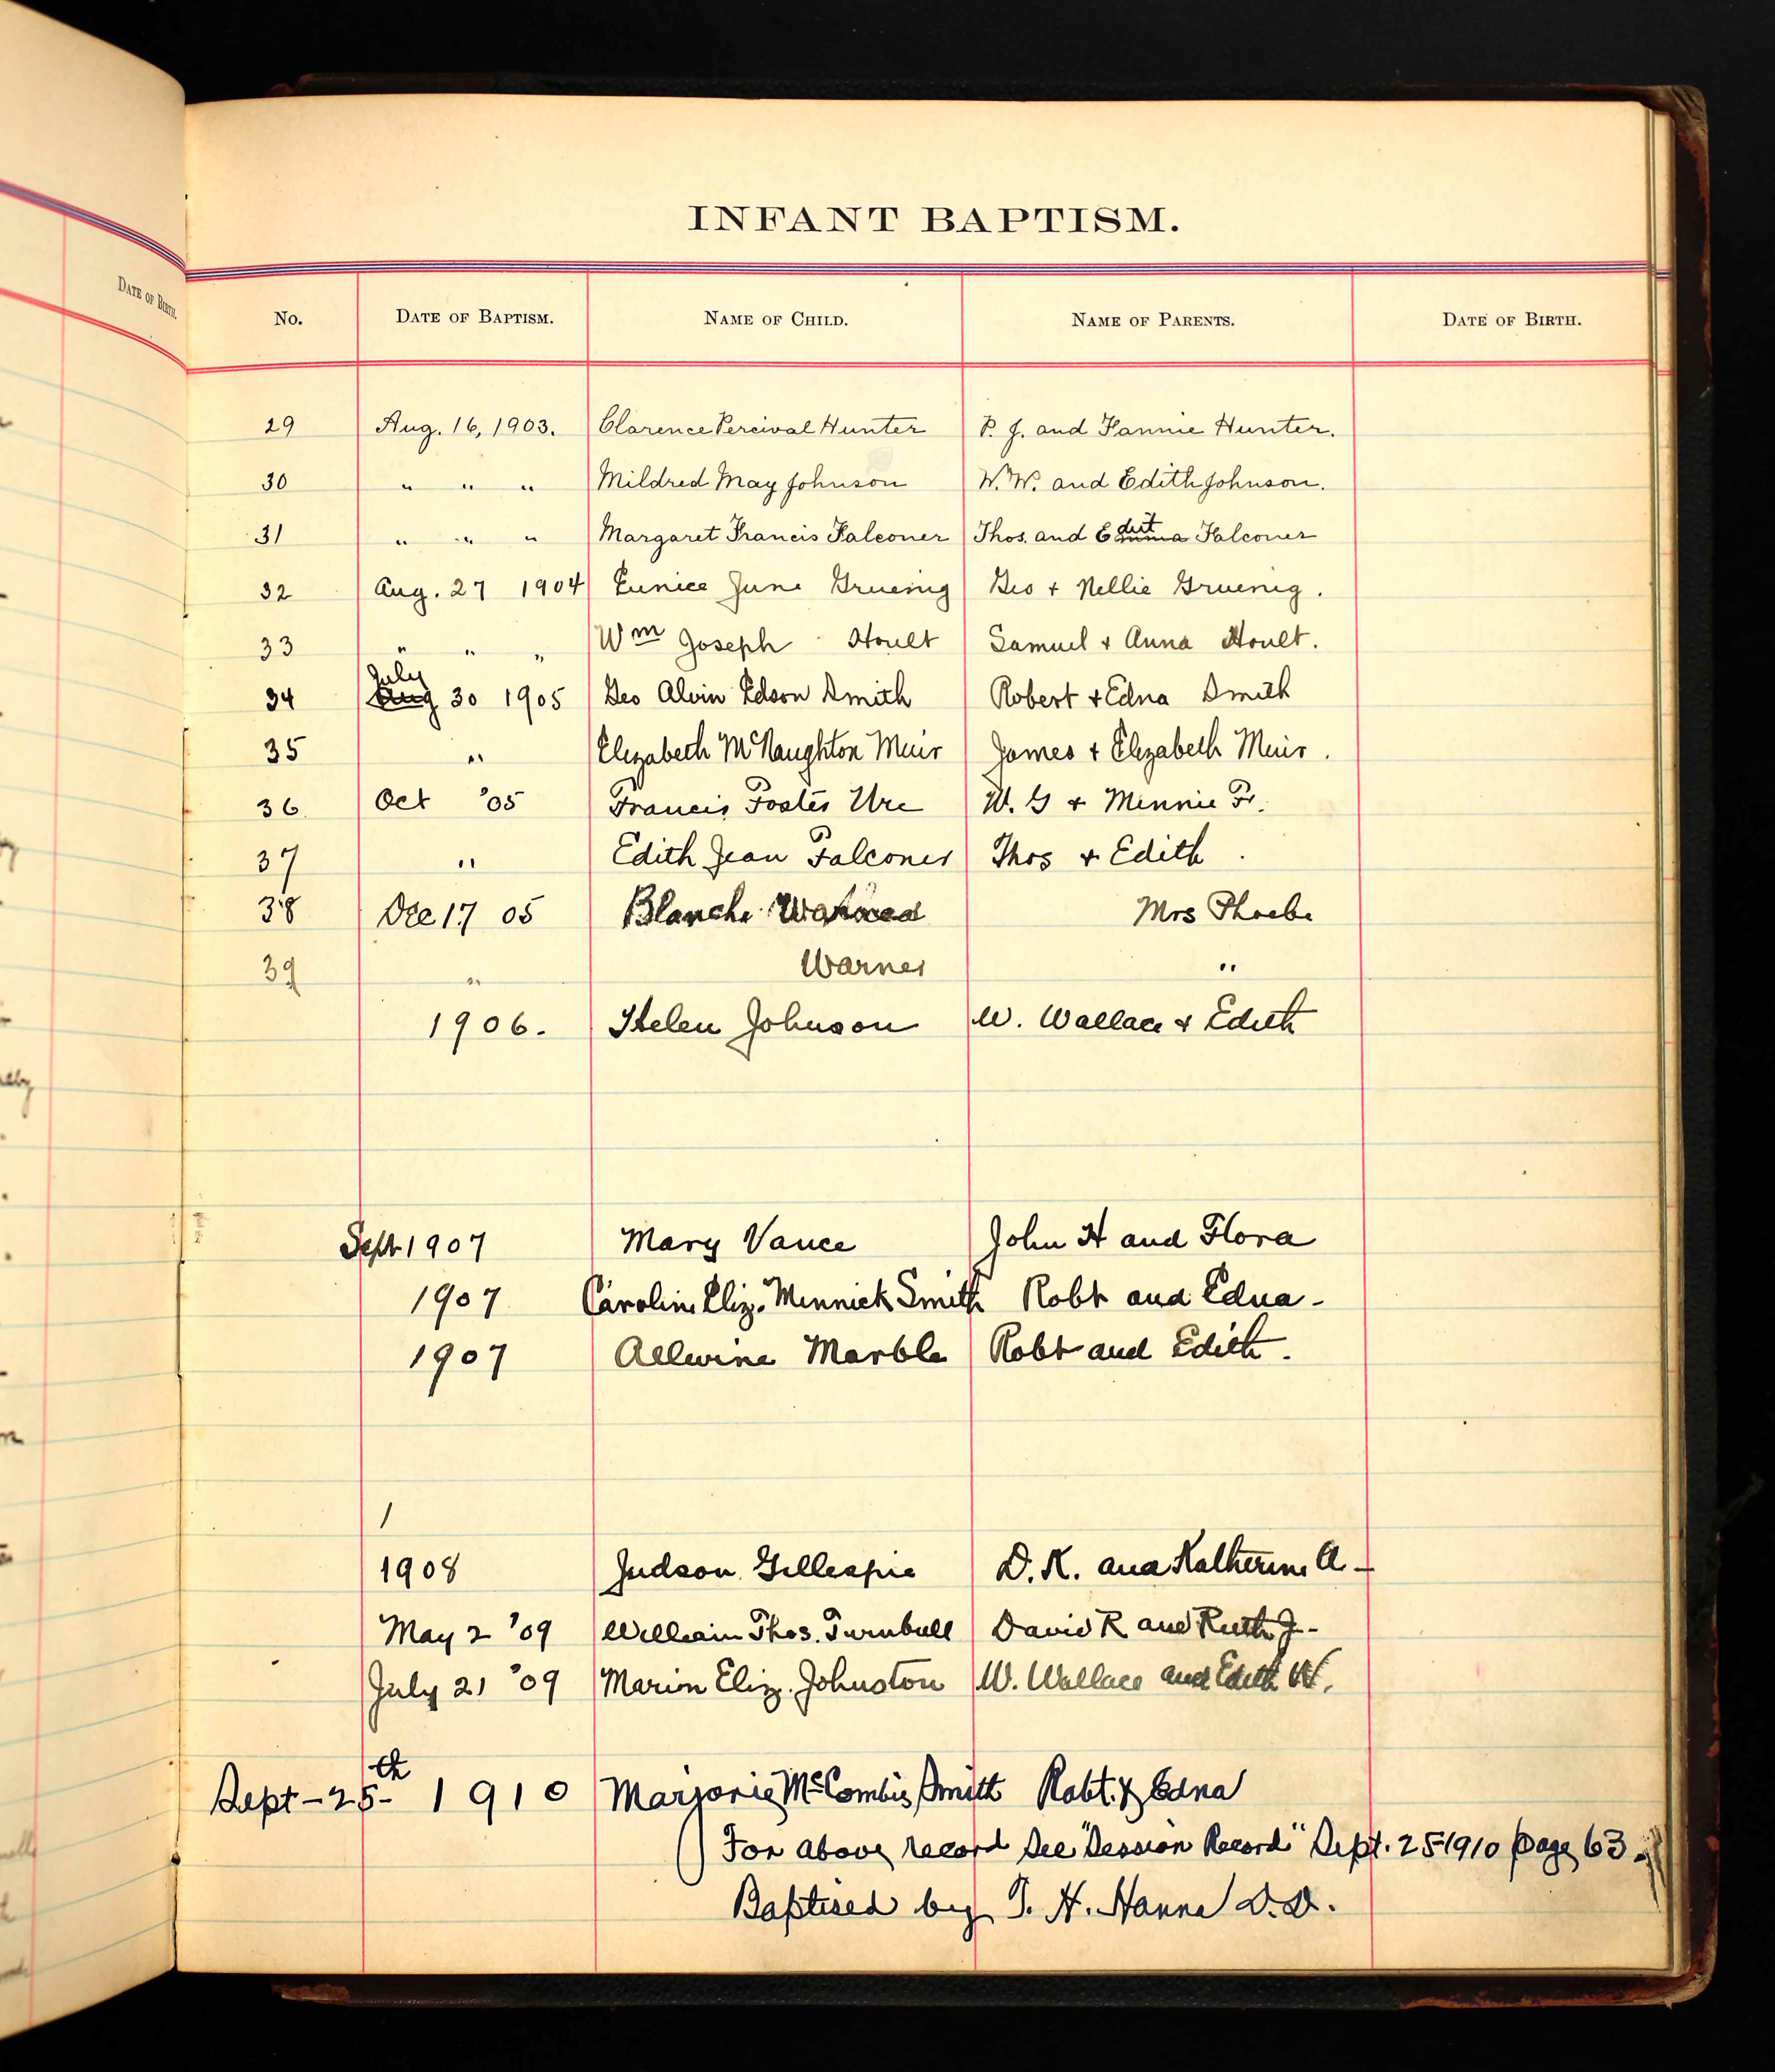 INFANT BAPTISM.
DATE OF BIRTH.
No. DATE OF BAPTISM. NAME OF CHILD. NAME OF PARENTS. DATE OF BIRTH.
29 Aug. 16, 1903. Clarence Percival Hunter P. J. and Fannie Hunter.
30 " " " Mildred May Johnson W. W. and Edith Johnson.
31 " " " Margaret Francis Falconer Thos. and Edit Falconer
32 Aug. 27 1904 Eunice June Gruenig Geo + Nellie Gruenig.
33 " " " Wm Joseph Hoult Samuel + Anna Hoult.
34 July Aug 30 1905 Geo Alvin Edson Smith Robert + Edna Smith
35 " Elizabeth McNaughton Muir James + Elizabeth Muir.
36. Oct '05 Francis Foster Ure W. G + Minnie Fr.
37 " Edith Jean Falconer Thos + Edith.
38 Dec 17 05 Blanche Mrs Phoebe
39 " Warner "
1906. Helen Johnson W. Wallace + Edith
Sept 1907 Mary Vance John H and Flora
1907 Caroline Eliz. Minnick Smith Robt and Edna-
1907 Allwine Marble Robt and Edith.
1
1908 Judson Gillespie D. K. and Katherine A-
May 2 '09 William Thos. Turnbull David R and Ruth J-
July 21 '09 Marion Eliz. Johnston W. Wallace and Edith W.
Sept-25th- 1910 Marjorie McCombie Smith Robt. & Edna
(For above record see "Session Record" Sept. 25-1910 page 63.
Baptised by T. H. Hanna D.D.